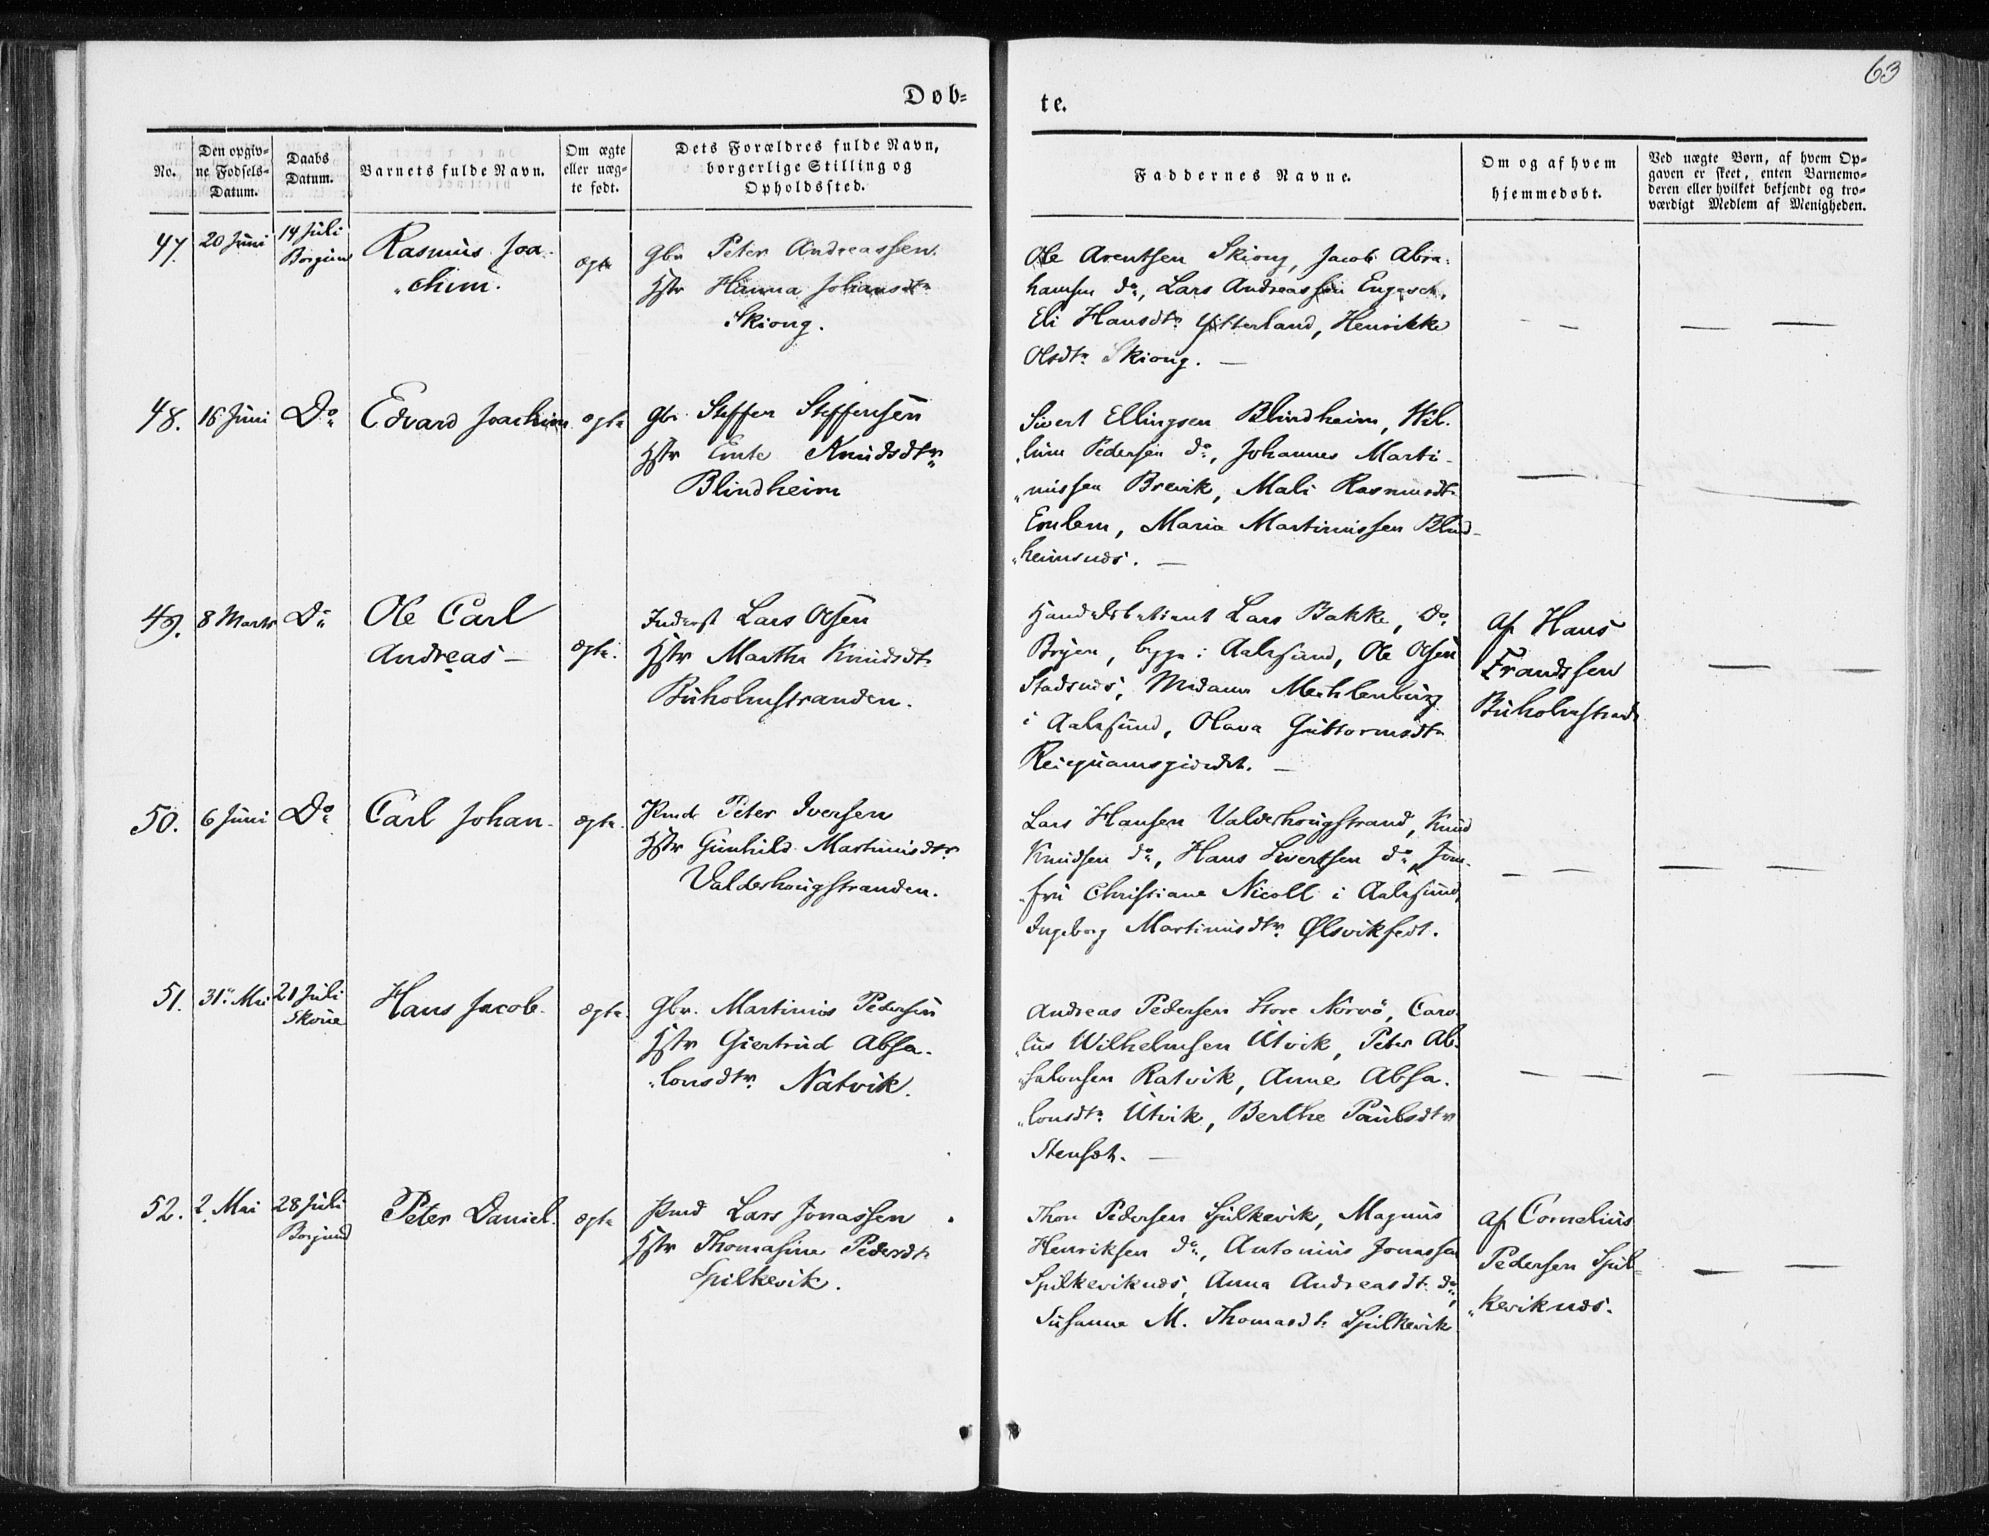 63
Døb-
te.
No.
Den opgiv-
ne Fødsels-
Datum.
Daabs
Datum.
Barnets fulde Navn.
Om ægte
eller uæg-
te født.
Dets Forældres fulde Navn,
borgerlige Stilling og
Opholdssted.
Faddernes Navne.
Om og af hvem
hjemmedøbt.
Ved uægte Børn, af hvem Op-
gaven er skeet, enten Barnemo-
deren eller hvilket bekjendt og tro-
værdigt Medlem af Menigheden.
47.
20 Juni
14 Juli
Borgund
Rasmus Joa-
chim.
ægte
Gbr. Peter Andreassen
Hstr Hanna Johansdtr
Skiong.
Ole Arentsen Skiong, Jacob Abra-
hamsen do, Lars Andreassen
Eli Hansdtr Ytterland, Henrikke
Olsdtr Skiong. —
48.
16 Juni
Do
Edvard Joachim
ægte
Gbr. Steffen Steffensen
Hstr Knudsdtr
Blindheim
Sivert Ellingsen Blindheim, Wil-
lum Pedersen do, Johannes Marti-
nussen Brevik, Mali Rasmusdtr
Emlem, Maria Martinussen Blind-
heimsnæs. —
49.
8 Marts
Do
Ole Carl
Andreas —
ægte.
Inderst Lars Olsen
Hstr Martha Knudsdtr
Buholmstranden.
Lars Bakke, Do
begge i Aalesund, Ole Olsen
Stadsnæs, Madame Mechlenburg
i Aalesund, Olava Guttormsdtr
af Hans
Frandsen
Buholmstrand
50.
6 Juni
Do
Carl Johan
ægte.
Pmd Peter Iversen
Hstr Gunhild Martinusdtr
Valderhougstranden.
Lars Hansen Valderhougstrand, Knud
Knudsen do, Hans Sivertsen do, Jom-
fru Christiane Nicoll i Aalesund,
Ingeborg Martinusdtr
51.
31te Mai
21 Juli
Skoue
Hans Jacob
ægte.
Gbr. Martinus Pedersen
Hstr Giertrud Absa-
lonsdtr. Ratvik.
Andreas Pedersen Store Norvø, Caro-
lus Wilhelmsen Utvik, Peter Ab-
salonsen Ratvik, Anne Absa-
lonsdtr Utvik, Berthe Paulsdtr
Stensæt. —
52.
2. Mai
28 Juli
Borgund
Peter Daniel
ægte
Pmd Lars Jonassen
Hstr Thomasine Pedersdtr
Spilkevik.
Thore Pedersen Spilkevik, Magnus
Henriksen do, Antonius Jonassen
Spilkeviknæs, Anna Andreasdtr do,
Susanne M. Thomasdtr Spilkevik
af Cornelius
Pedersen Spil-
keviknæs.